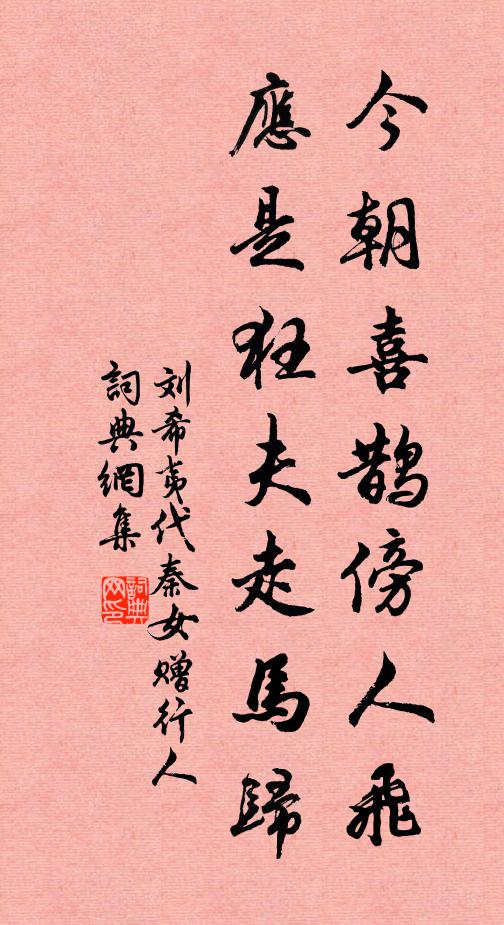 今朝喜鵲傍人飛
應是狂夫走馬歸
刘希夷代秦女赠行人
詞典網集
詞典网印